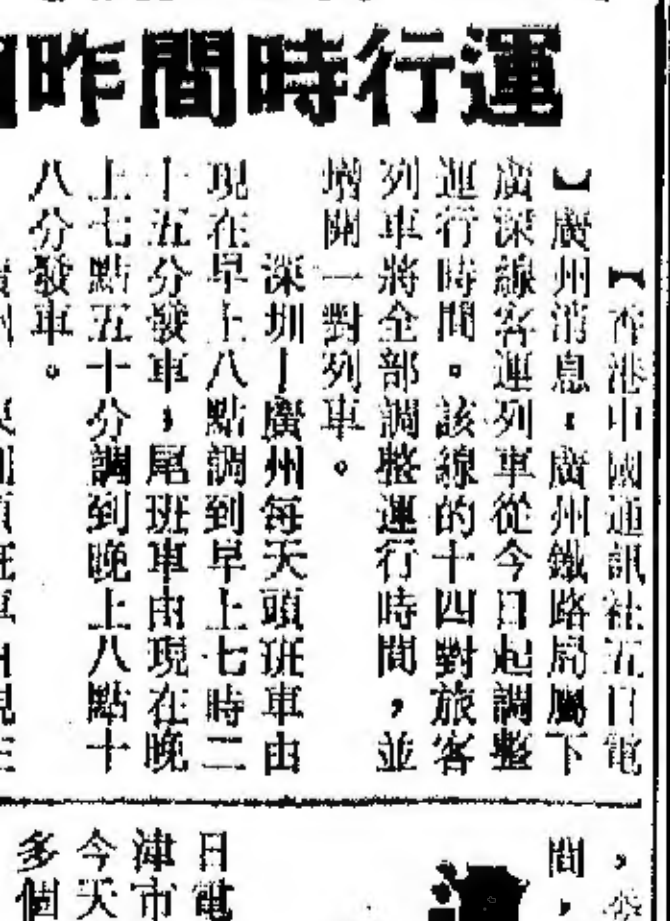 運行時間昨
【香港中國通訊社五日電
】廣州消息：廣州鐵路局屬下
廣深線客運列車從今日起調整
運行時間。該線的十四對旅客
列車將全部調整運行時間，並
增開一對列車。
深圳—廣州每天頭班車由
現在早上八點調到早上七時二
十五分發車，尾班車由現在晚
上七點五十分調到晚上八點十
八分發車。
間，
日電
津市
今天
多個